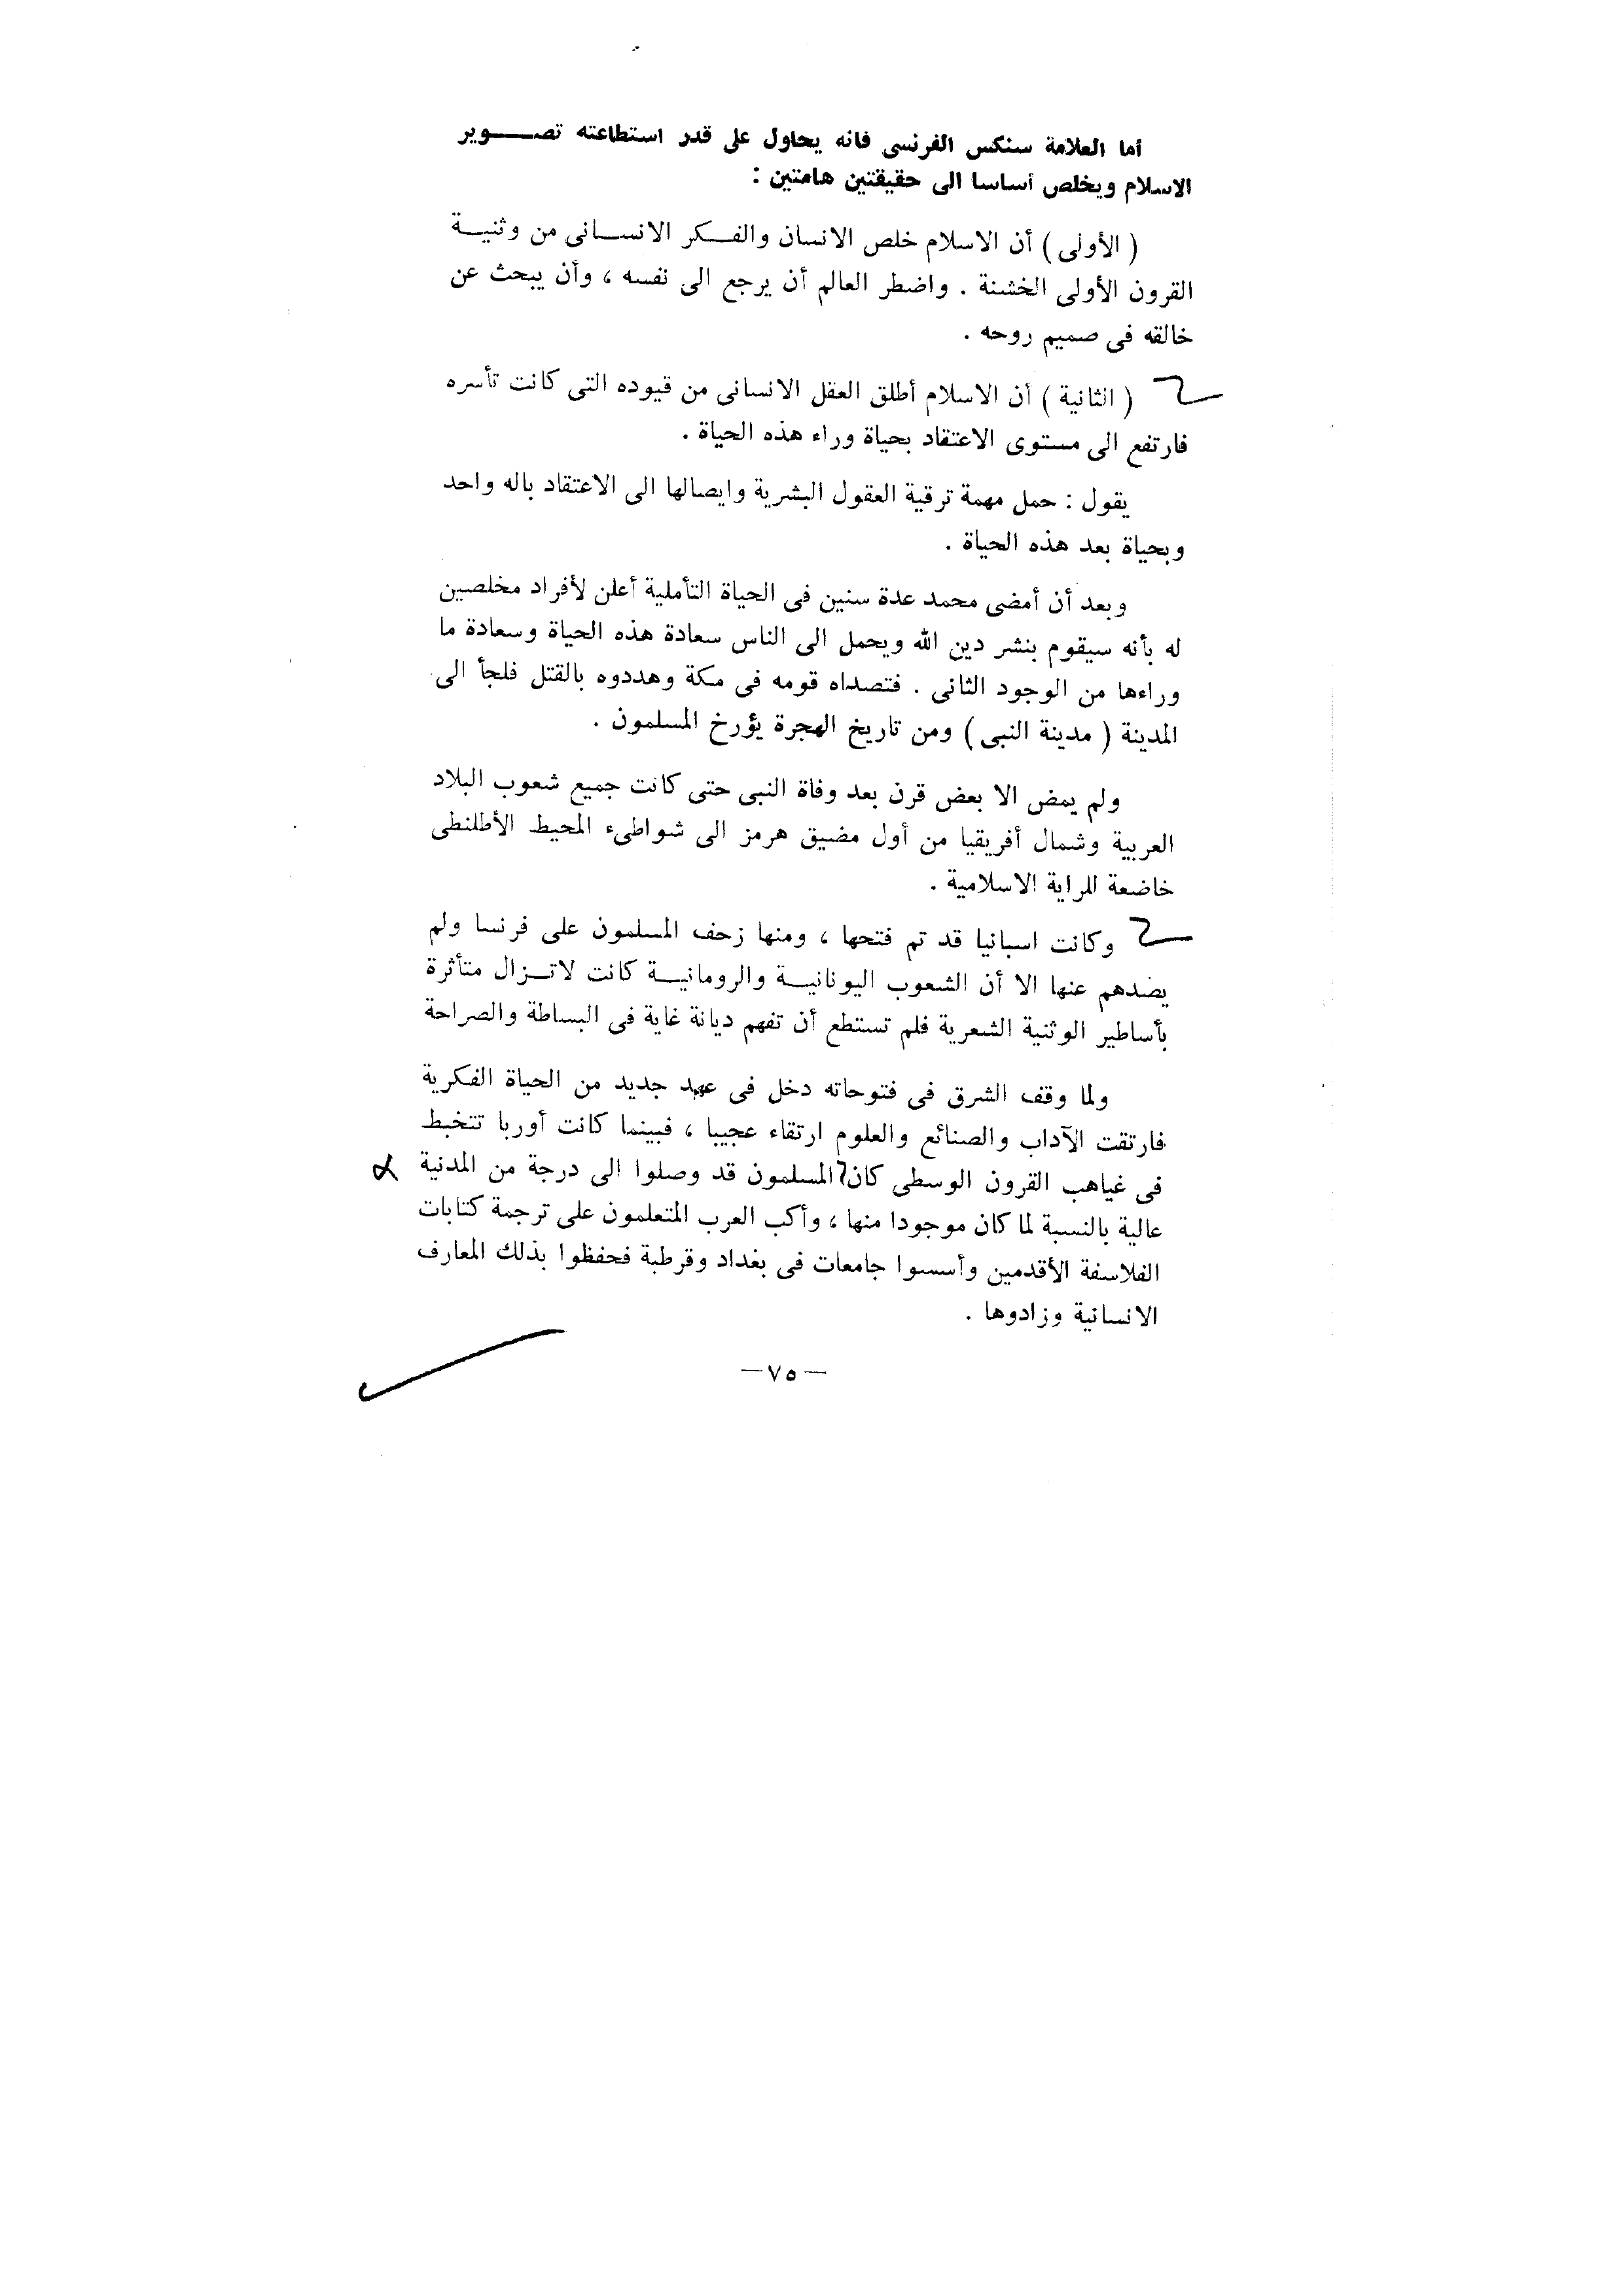 أما العلامة سنكس الفرنسى فانه يحاول على قدر استطاعته تصـــوير
الاسلام ويخلص أساسا الى حقيقتين هامتين :
( الأولى ) أن الاسلام خلص الانسان والفـكر الانسـانى من وثنيـة
القرون الأولى الخشنة . واضطر العالم أن يرجع الى نفسه ، وأن يبحث عن
خالقه فى صميم روحه .
( الثانية ) أن الاسلام أطلق العقل الانسانى من قيوده التى كانت تأسره
فارتفع الى مستوى الاعتقاد بحياة وراء هذه الحياة .
يقول : حمل مهمة ترقية العقول البشرية وايصالها الى الاعتقاد باله واحد
وبحياة بعد هذه الحياة .
وبعد أن أمضى محمد عدة سنين فى الحياة التأملية أعلن لأفراد مخلصين
له بأنه سيقوم بنشر دين الله ويحمل الى الناس سعادة هذه الحياة وسعادة ما
وراءها من الوجود الثانى . فتصداه قومه فى مكة وهددوه بالقتل فلجأ الى
المدينة ( مدينة النبى ) ومن تاريخ الهجرة يؤرخ المسلمون .
ولم يمض الا بعض قرن بعد وفاة النبى حتى كانت جميع شعوب البلاد
العربية وشمال أفريقيا من أول مضيق هرمز الى شواطىء المحيط الأطلنطى
خاضعة للراية الاسلامية .
وكانت اسبانيا قد تم فتحها ، ومنها زحف المسلمون على فرنسا ولم
يصدهم عنها الا أن الشعوب اليونانيـة والرومانيـة كانت لاتـزال متأثرة
بأساطير الوثنية الشعرية فلم تستطع أن تفهم ديانة غاية فى البساطة والصراحة
ولما وقف الشرق فى فتوحاته دخل فى عهد جديد من الحياة الفكرية
فارتقت الآداب والصنائع والعلوم ارتقاء عجيبا ، فبينما كانت أوربا تتخبط
فى غياهب القرون الوسطى كان المسلمون قد وصلوا الى درجة من المدنية
عالية بالنسبة لما كان موجودا منها ، وأكب العرب المتعلمون على ترجمة كتابات
الفلاسفة الأقدمين وأسسوا جامعات فى بغداد وقرطبة فحفظوا بذلك المعارف
الانسانية وزادوها .
— ٧٥ —